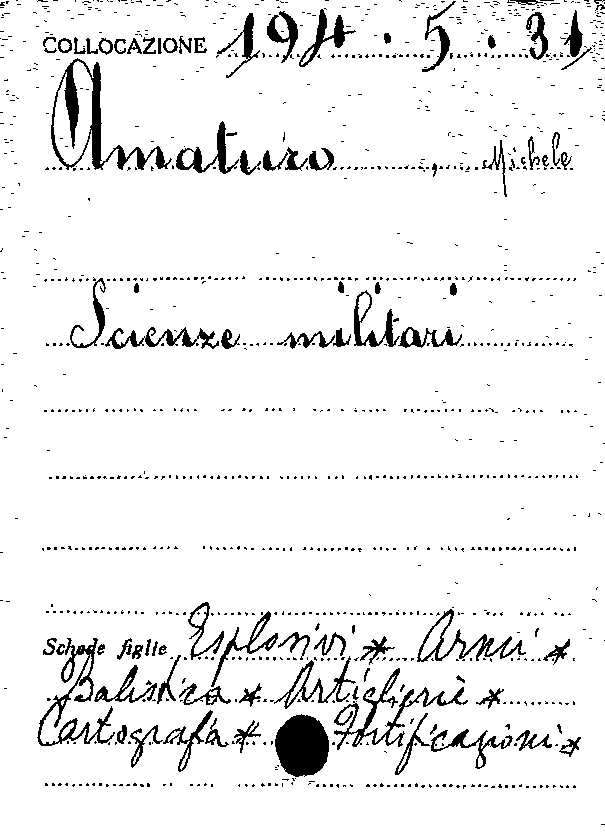 COLLOCAZIONE 194.5.31
Amaturo, Michele
Scienze militari
Schede figlie Esplosivi * Armi *
Balistica * Artiglierie *
Cartografia * Fortificazioni *